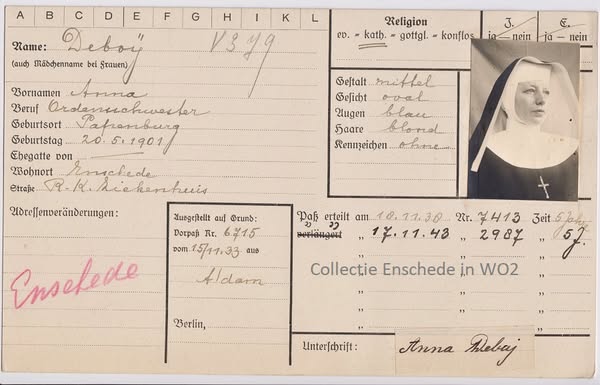 A B C D E F G H I K L
Name: Deboÿ
(auch Mädchenname bei Frauen)
V379
Vornamen Anna
Beruf Ordensschwester
Geburtsort Papenburg
Geburtstag 20.5.1901
Ehegatte von —
Wohnort Enschede
Straße R.K. Ziekenhuis
Religion
ev. - kath. - gottgl. - konflos.
J.
ja - nein
E.
ja - nein
Gestalt mittel
Gesicht oval
Augen blau
Haare blond
Kennzeichen ohne
Adressenveränderungen:
Enschede
Ausgestellt auf Grund:
Vorpaß Nr. 6715
vom 15/11.33 aus
A'dam
Berlin,
Paß erteilt am 18.11.38 Nr. 7413 Zeit 5 Jahr
verlängert 17.11.43 " 2987 " 5 J.
Collectie Enschede in WO2
Unterschrift: Anna Deboij